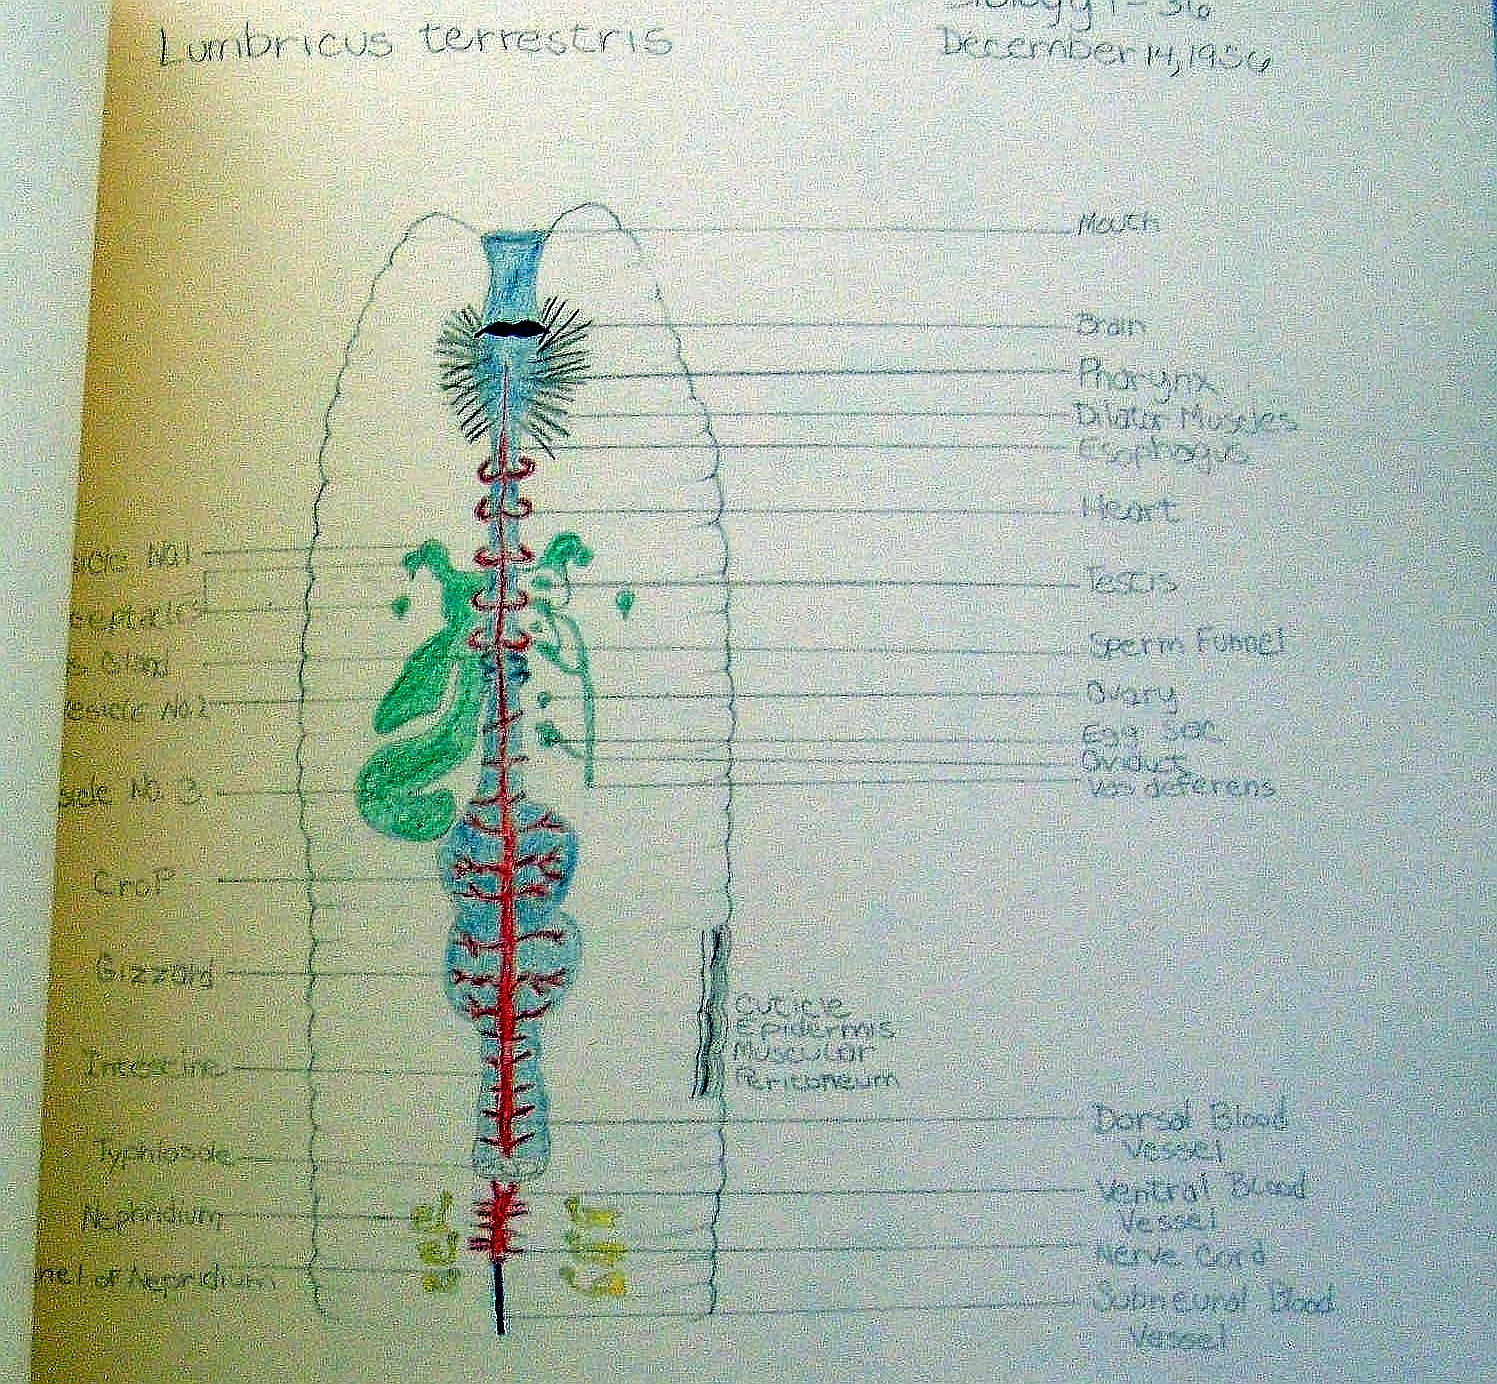 Lumbricus terrestris
Biology 1-
December 14, 1956
Mouth
Brain
Pharynx
Dilator Muscles
Esophagus
Heart
Testis
Sperm Funnel
Ovary
Egg sac
Oviduct
Vas deferens
No.1
No.2
No. 3
Crop
Gizzard
Intestine
Typhlosole
Nephridium
of Nepridium
Cuticle
Epidermis
Muscular
Peritoneum
Dorsal Blood
Vessel
Ventral Blood
Vessel
Nerve Cord
Subneural Blood
Vessel